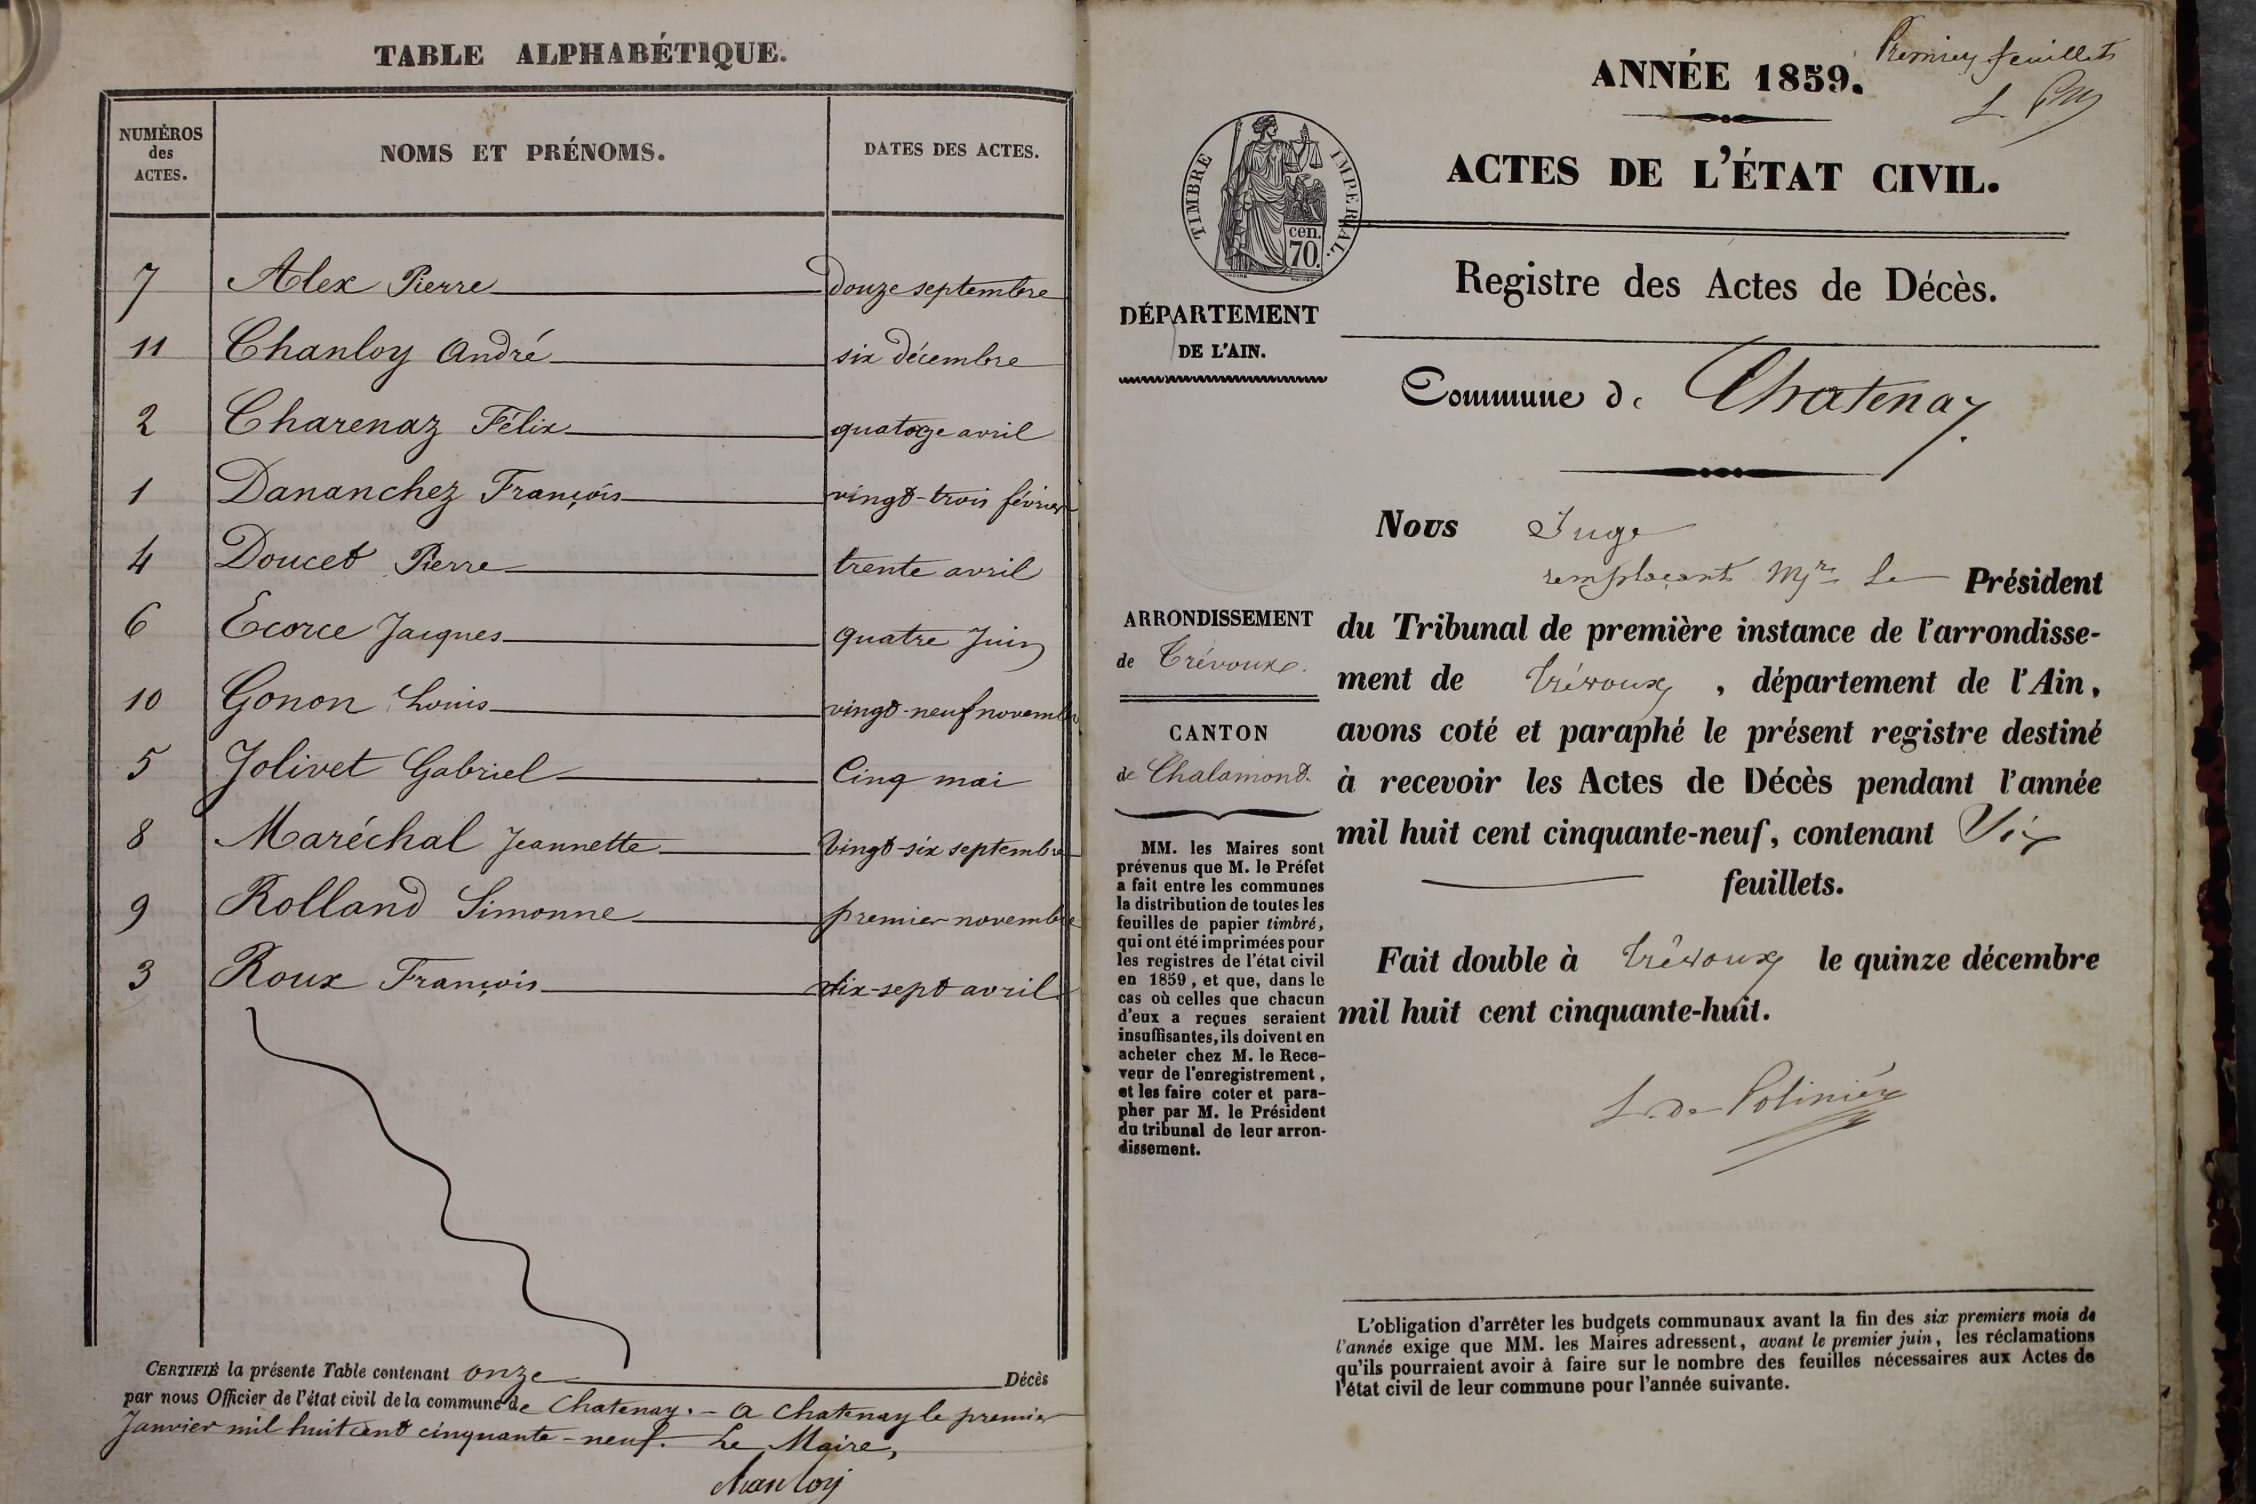 TABLE ALPHABÉTIQUE.
NUMÉROS des ACTES. NOMS ET PRÉNOMS. DATES DES ACTES.
7 Alex Pierre douze septembre
11 Chanloy André six décembre
2 Charenaz Félix quatorze avril
1 Dananchez François vingt-trois février
4 Doucet Pierre trente avril
6 Ecorce Jacques quatre Juin
10 Gonon Louis vingt-neuf novembre
5 Jolivet Gabriel Cinq mai
8 Maréchal Jeannette Vingt-six septembre
9 Rolland Simonne premier novembre
3 Roux François dix-sept avril
CERTIFIÉ la présente Table contenant onze Décès
par nous Officier de l'état civil de la commune de Chatenay. – a Chatenay le premier
Janvier mil huit cent cinquante-neuf. Le Maire,
Chanloy
Premier feuillet
ANNÉE 1859.
ACTES DE L'ÉTAT CIVIL.
TIMBRE IMPERIAL.
cen.
70.
Registre des Actes de Décès.
DÉPARTEMENT
DE L'AIN.
Commune de Chatenay.
ARRONDISSEMENT
de Trévoux.
CANTON
de Chalamont.
MM. les Maires sont
prévenus que M. le Préfet
a fait entre les communes
la distribution de toutes les
feuilles de papier timbré,
qui ont été imprimées pour
les registres de l'état civil
en 1859, et que, dans le
cas où celles que chacun
d'eux a reçues seraient
insuffisantes, ils doivent en
acheter chez M. le Rece-
veur de l'enregistrement,
et les faire coter et para-
pher par M. le Président
du tribunal de leur arron-
dissement.
Nous Juge
remplaçant Mr Le Président
du Tribunal de première instance de l'arrondisse-
ment de Trévoux, département de l'Ain,
avons coté et paraphé le présent registre destiné
à recevoir les Actes de Décès pendant l'année
mil huit cent cinquante-neuf, contenant
feuillets.
Fait double à Trévoux le quinze décembre
mil huit cent cinquante-huit.
L. de Polinière
L'obligation d'arrêter les budgets communaux avant la fin des six premiers mois de
l'année exige que MM. les Maires adressent, avant le premier juin, les réclamations
qu'ils pourraient avoir à faire sur le nombre des feuilles nécessaires aux Actes de
l'état civil de leur commune pour l'année suivante.